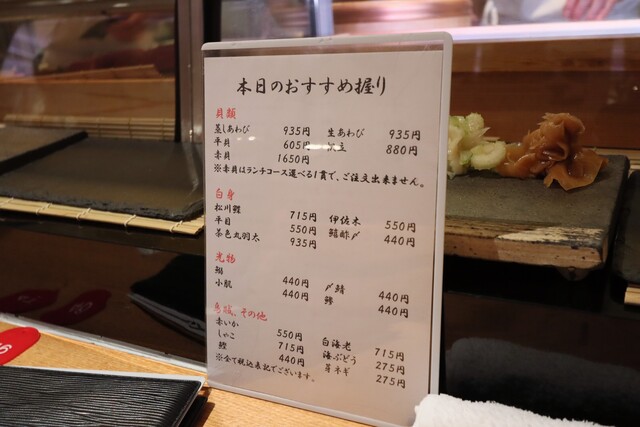 本日のおすすめ握り
貝類
蒸しあわび 935円 生あわび 935円
平貝 605円 帆立 880円
赤貝 1650円
※赤貝はランチコース選べる1貫で、ご注文出来ません。
白身
松川鰈 715円 伊佐木 550円
平目 550円 鱚酢〆 440円
茶色丸羽太 935円
光物
鯛 440円 〆鯖 440円
小肌 440円 鯵 440円
赤いか 550円 白海老 715円
しゃこ 715円 海ぶどう 275円
鰹 440円 芽ネギ 275円
※全て税込表記でございます。